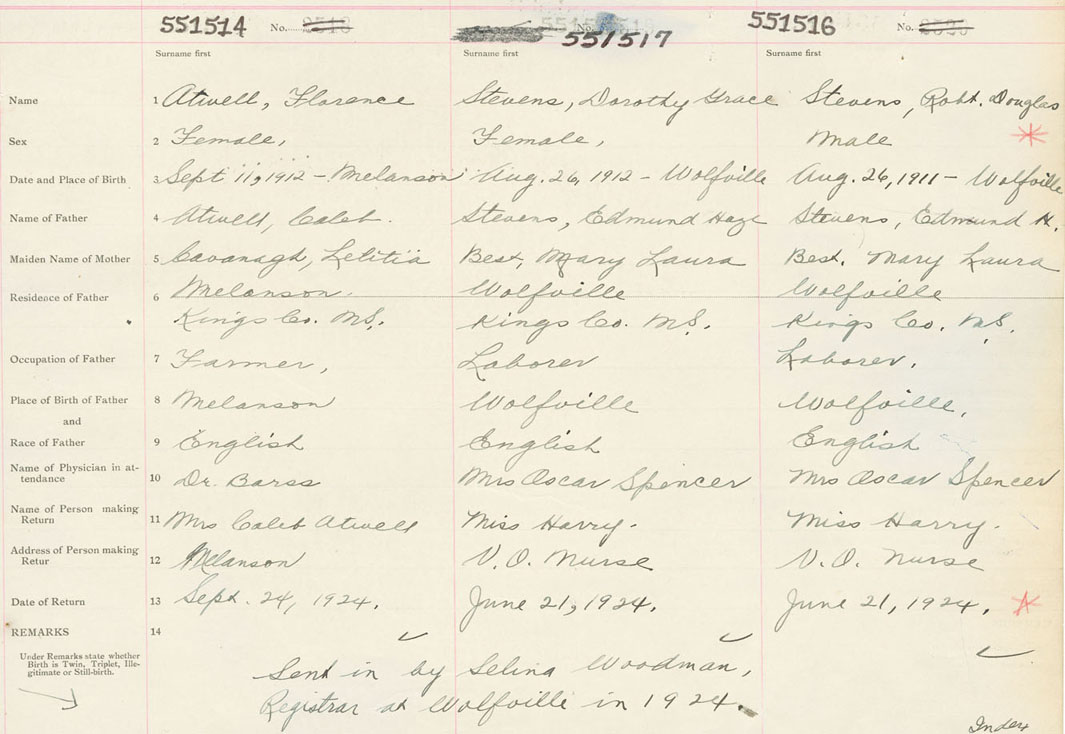 551514 No. 2518 551517 No. 551516 No. 2520
Surname first Surname first Surname first
Name 1 Atwell, Florence Stevens, Dorothy Grace Stevens, Robt. Douglas
Sex 2 Female, Female, Male
Date and Place of Birth 3 Sept 11, 1912 - Melanson Aug. 26, 1912 - Wolfville Aug. 26, 1911 - Wolfville
Name of Father 4 Atwell, Caleb. Stevens, Edmund Haze Stevens, Edmund H.
Maiden Name of Mother 5 Cavanagh, Letitia Best, Mary Laura Best. Mary Laura
Residence of Father 6 Melanson. Wolfville Wolfville
Kings Co. N.S. Kings Co. N.S. Kings Co. N.S.
Occupation of Father 7 Farmer, Laborer Laborer.
Place of Birth of Father 8 Melanson Wolfville Wolfville,
and
Race of Father 9 English English English
Name of Physician in at-
tendance 10 Dr. Barss Mrs Oscar Spencer Mrs Oscar Spencer
Name of Person making
Return 11 Mrs Caleb Atwell Miss Harry. Miss Harry.
Address of Person making
Retur 12 Melanson V.O. Nurse V.O. Nurse
Date of Return 13 Sept. 24, 1924. June 21, 1924. June 21, 1924.
REMARKS 14
Under Remarks state whether
Birth is Twin, Triplet, Ille-
gitimate or Still-birth.
Sent in by Selina Woodman,
Registrar at Wolfville in 1924.
Index